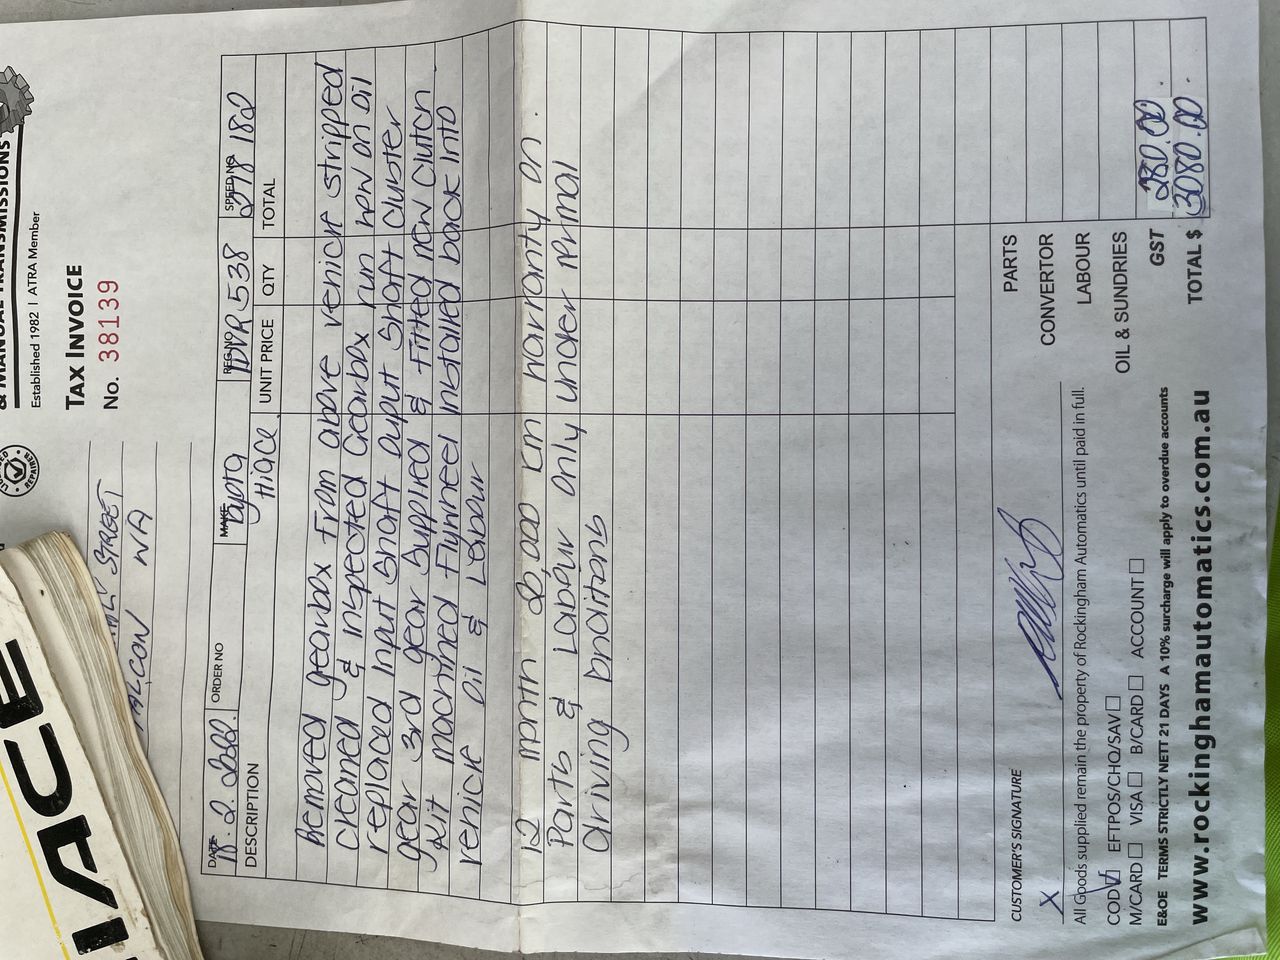 & MANUAL TRANSMISSIONS
Established 1982 | ATRA Member
TAX INVOICE
No. 38139
LICENSED REPAIRER
STREET
FALCON WA
DATE 18.2.2022 ORDER NO MAKE Toyota Hiace REG NO 1DVR538 SPEEDO 278 182
DESCRIPTION UNIT PRICE QTY TOTAL
Removed gearbox from above vehicle stripped
cleaned & inspected Gearbox run low on oil
replaced input shaft ouput shaft cluster
gear 3rd gear supplied & fitted new clutch
kit machined flywheel installed back into
vehicle oil & Labour
12 month 20,000 km warranty on
Parts & Labour only under normal
driving conditions
PARTS
CONVERTOR
LABOUR
OIL & SUNDRIES
GST 280.00
TOTAL $ 3080.00
CUSTOMER'S SIGNATURE
X
All Goods supplied remain the property of Rockingham Automatics until paid in full.
COD EFTPOS/CHQ/SAV
M/CARD VISA B/CARD ACCOUNT
E&OE TERMS STRICTLY NETT 21 DAYS A 10% surcharge will apply to overdue accounts
www.rockinghamautomatics.com.au
IACE